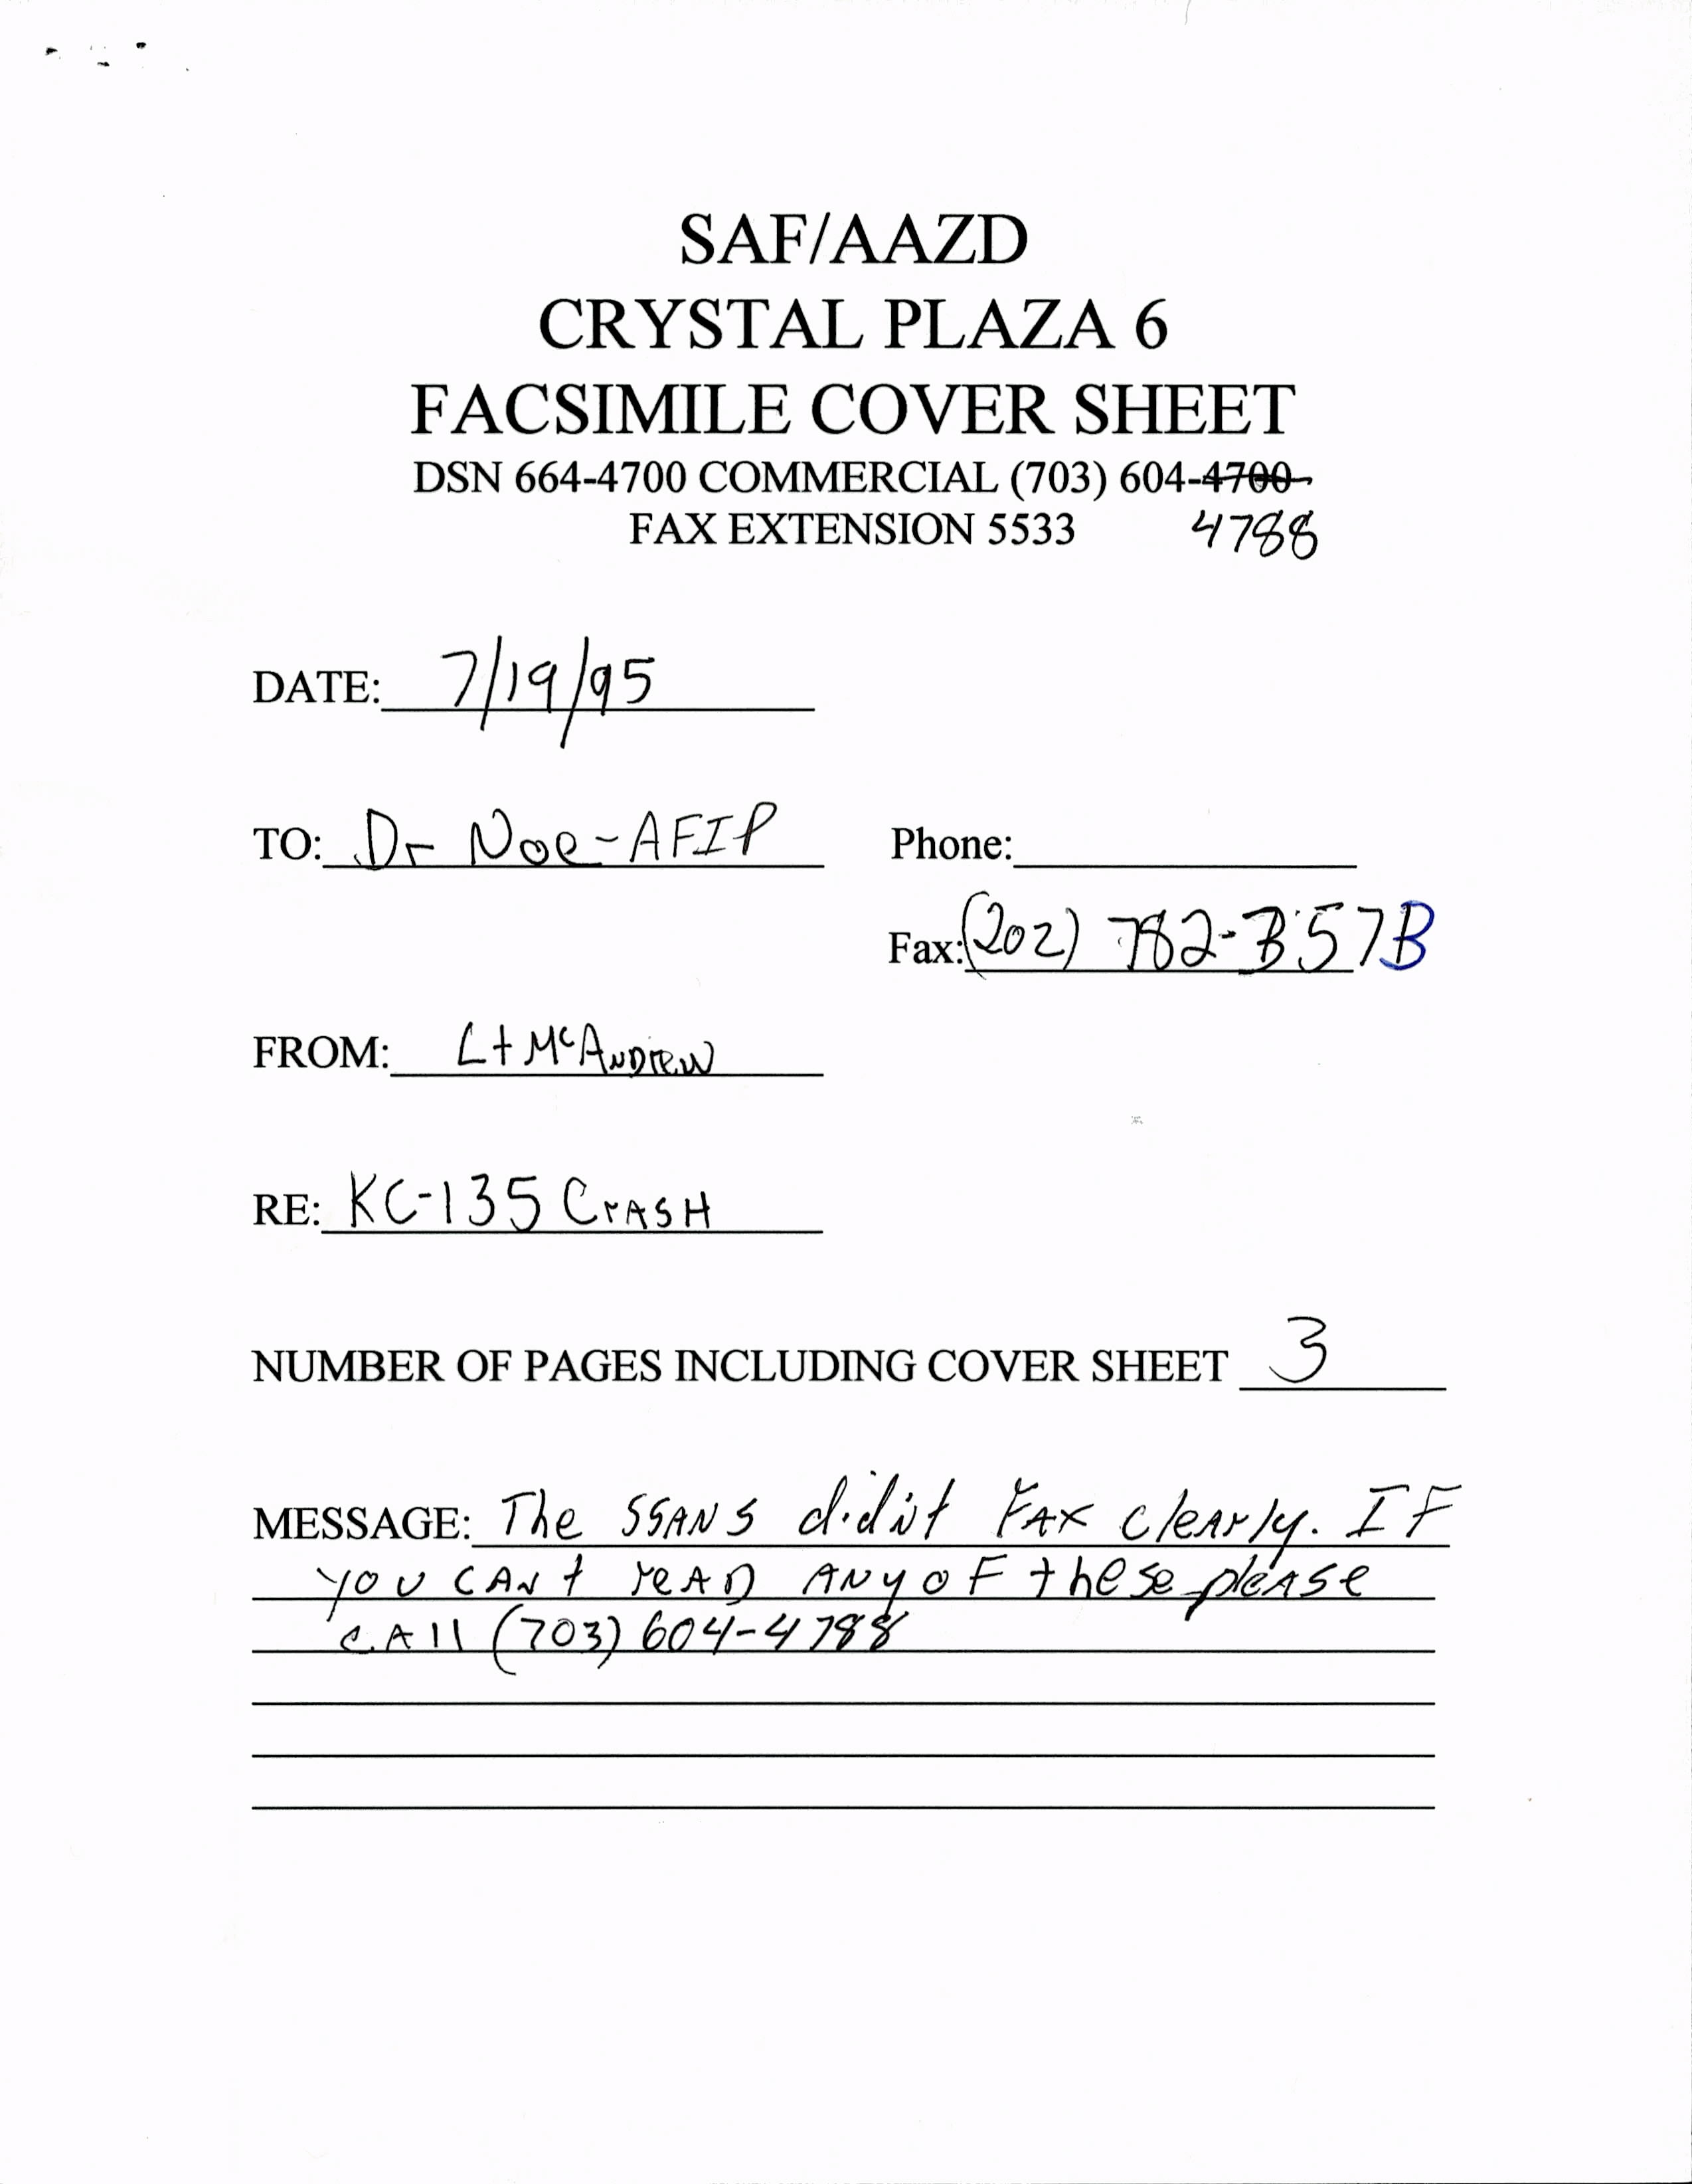 SAF/AAZD
CRYSTAL PLAZA 6
FACSIMILE COVER SHEET
DSN 664-4700 COMMERCIAL (703) 604-4700
FAX EXTENSION 5533 4788
DATE: 7/19/95
TO: Dr Noe-AFIP Phone:
Fax: (202) 782-3573
FROM: Lt McAndrew
RE: KC-135 Crash
NUMBER OF PAGES INCLUDING COVER SHEET 3
MESSAGE: The SSANS didn't FAX cleArly. IF
you CAN't reAD ANy oF these pleAse
cAll (703) 604-4788